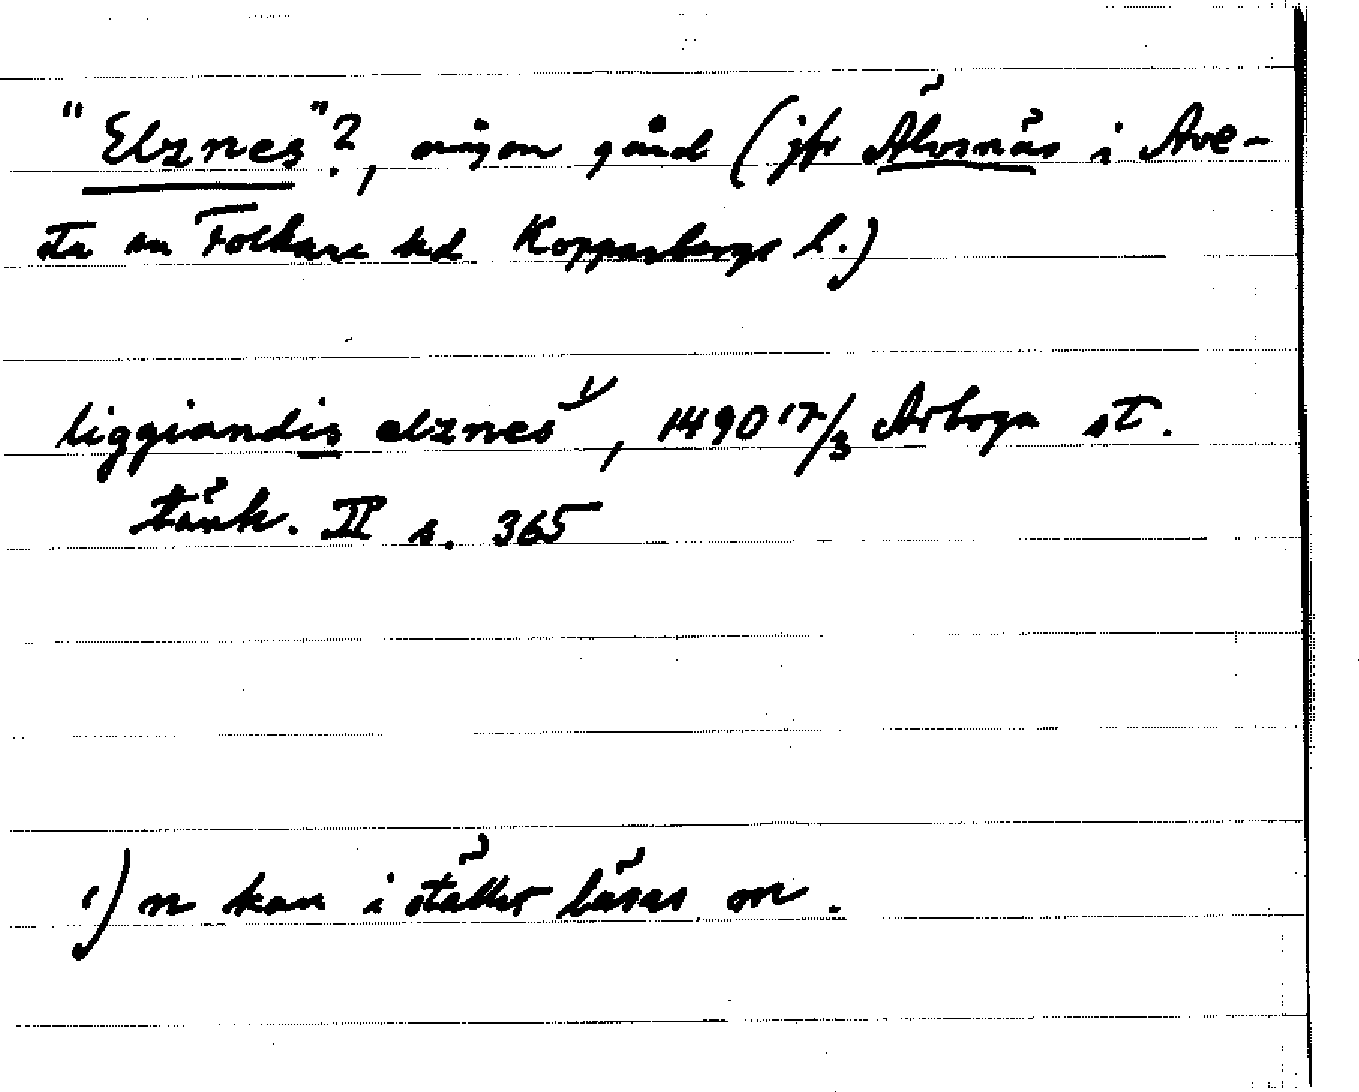 "Elznes"?, någon gård (jfr Älvsnäs i Ave-
sta sn Folkare hd Kopparbergs l.)
liggiandis elznes¹⁾, 1490 17/3 Arboga st.
tänk. II s. 365
1) n kan i stället läsas m.